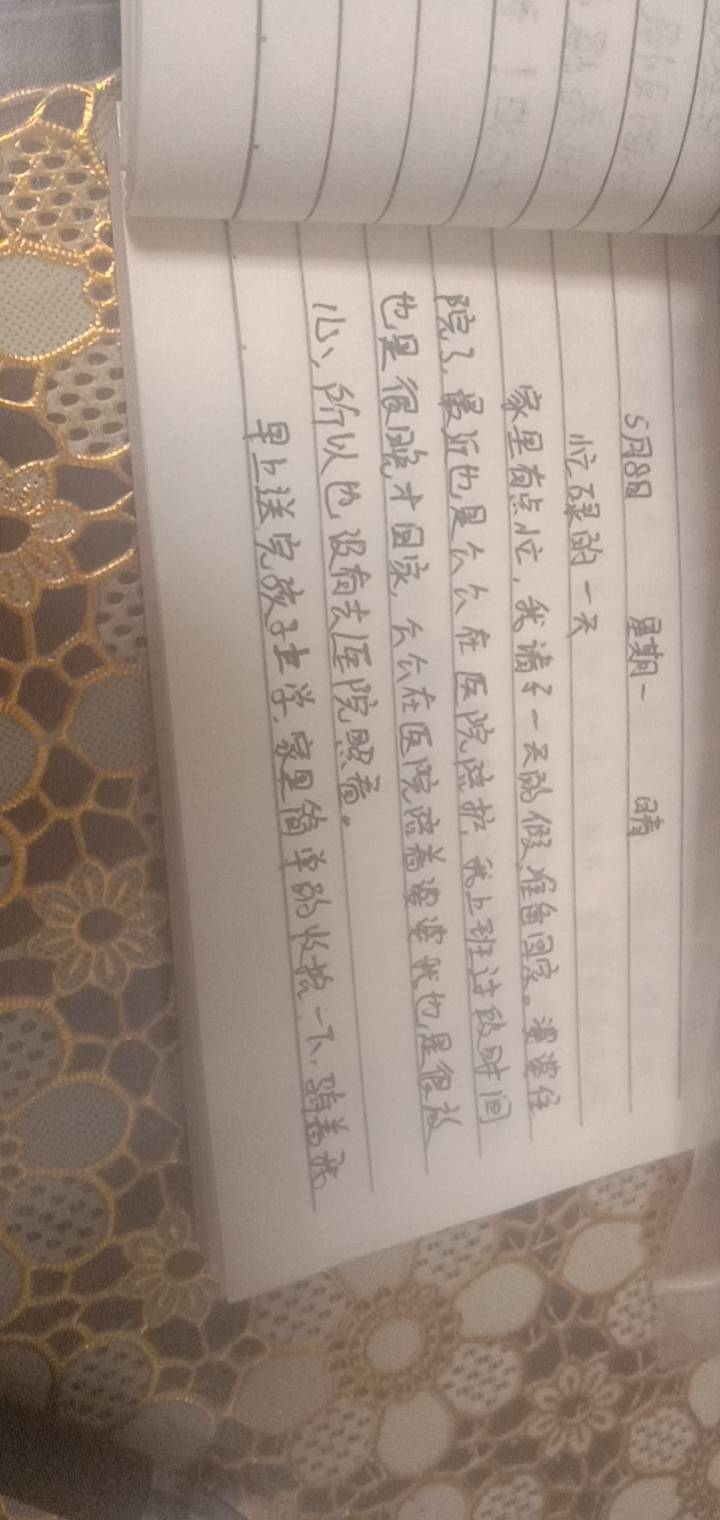 5月8日 星期一 晴
忙碌的一天
家里有点忙，我请了一天的假，准备回家。婆婆住
院了，最近也是么么在医院陪护，我上班这段时间
也是很晚才回家，么么在医院陪着婆婆我也是很放
心，所以也没有去医院照看。
早上送完孩子上学，家里简单的收拾一下，骑着我